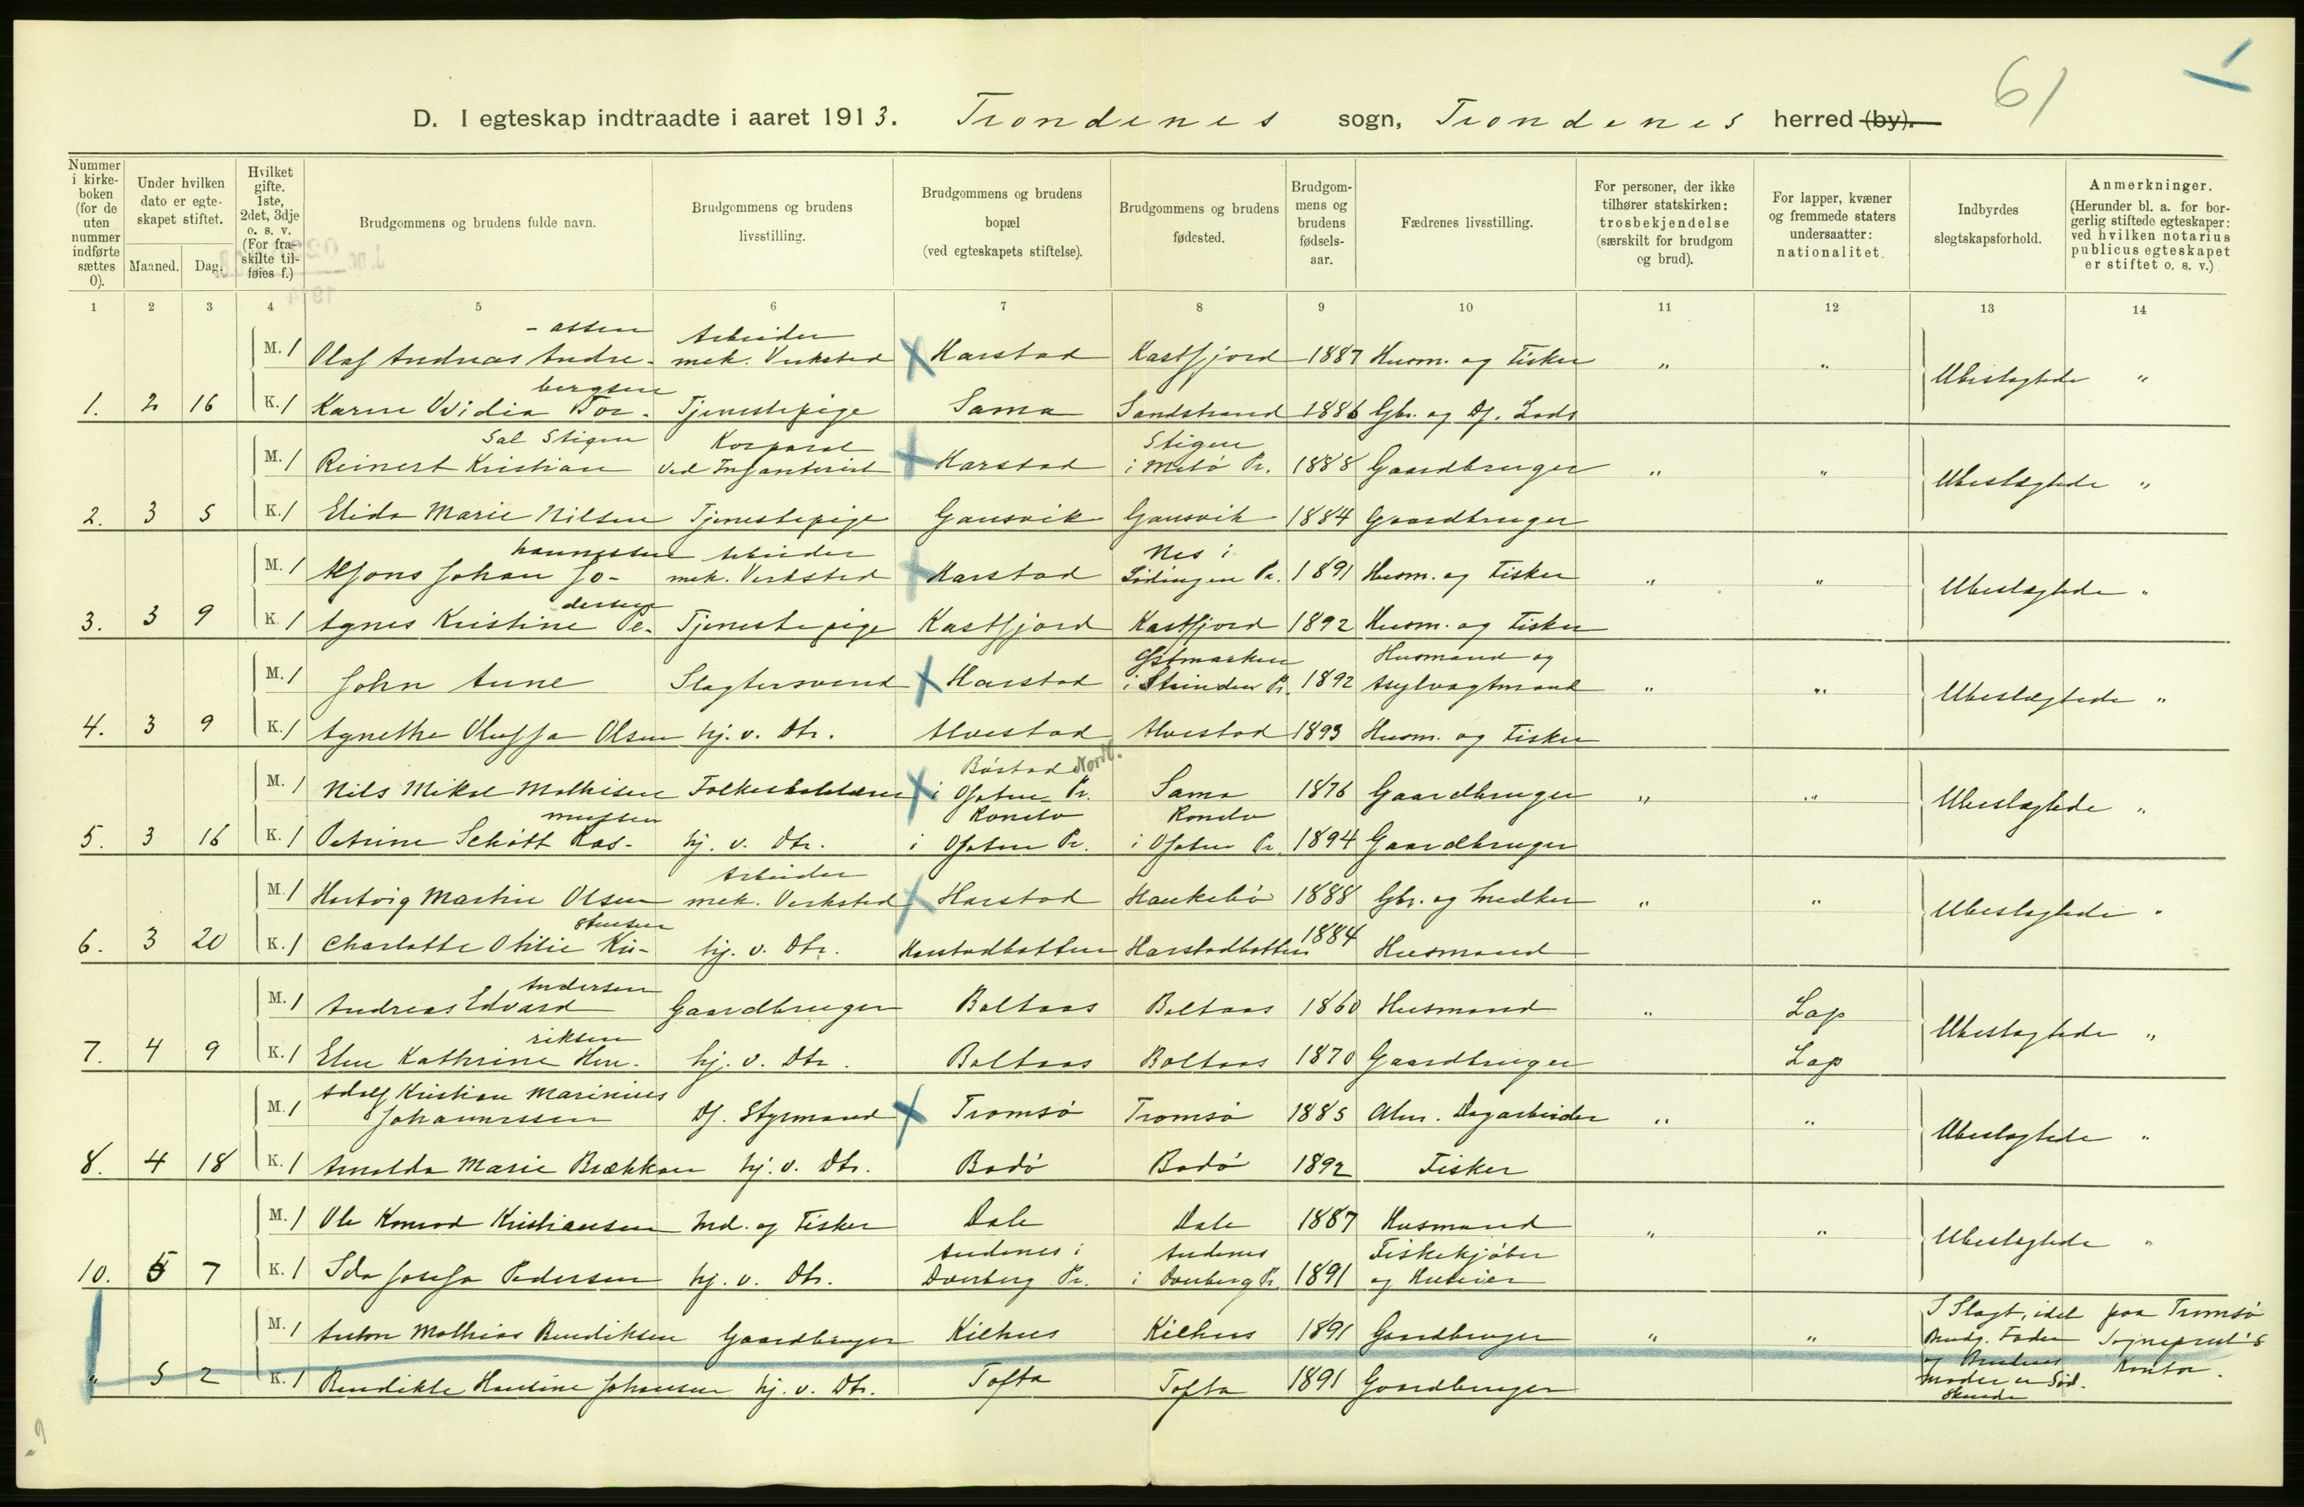 61
D. I egteskap indtraadte i aaret 1913. Trondenes sogn, Trondenes herred (by).
Nummer i kirkeboken (for de uten nummer indførte sættes 0).
Under hvilken dato er egteskapet stiftet.
Maaned. Dag.
Hvilket gifte. 1ste, 2det, 3dje o. s. v. (For fraskilte tilføies f.)
Brudgommens og brudens fulde navn.
Brudgommens og brudens livsstilling.
Brudgommens og brudens bopæl (ved egteskapets stiftelse).
Brudgommens og brudens fødested.
Brudgommens og brudens fødselsaar.
Fædrenes livsstilling.
For personer, der ikke tilhører statskirken: trosbekjendelse (særskilt for brudgom og brud).
For lapper, kvæner og fremmede staters undersaatter: nationalitet.
Indbyrdes slegtskapsforhold.
Anmerkninger. (Herunder bl. a. for borgerlig stiftede egteskaper: ved hvilken notarius publicus egteskapet er stiftet o. s. v.)
1 2 3 4 5 6 7 8 9 10 11 12 13 14
M. 1 Olaf Andreas Andreassen Arbeider mek. Verksted Harstad Kastfjord 1887 Husm. og Fisker " " Ubeslegtede "
1. 2 16 K. 1 Karen Ovidia Torbergsen Tjenestepige Sama Sandstrand 1886 Gbr. og Df. Lods
M. 1 Reinert Kristian Sal Stigen Korporal ved Infanteriet Harstad Stigen i Melø Pr. 1888 Gaardbruger " " Ubeslegtede "
2. 3 5 K. 1 Elida Marie Nilsen Tjenestepige Gausvik Gausvik 1884 Gaardbruger
M. 1 Alfons Johan Johannessen Arbeider mek. Verksted Harstad Nes i Lødingen Pr. 1891 Husm. og Fisker " " Ubeslegtede "
3. 3 9 K. 1 Agnes Kristine Pedersen Tjenestepige Kastfjord Kastfjord 1892 Husm. og Fisker
M. 1 John Aune Slagtersvend Harstad Østmarken i Strinden Pr. 1892 Husmand og Asylvagtmand " " Ubeslegtede "
4. 3 9 K. 1 Agnethe Oluffa Olsen hj. v. Dtr. Alvestad Alvestad 1893 Husm. og Fisker
M. 1 Nils Mikal Mathisen Folkeskolelærer Bøstad i Ofoten Pr. Nordl. Sama 1876 Gaardbruger " " Ubeslegtede "
5. 3 16 K. 1 Petrine Schøtt Rasmussen hj. v. Dtr. i Ofoten Pr. i Ofoten Pr. 1894 Gaardbruger
M. 1 Hartvig Martin Olsen Arbeider mek. Verksted Harstad Haukebø 1888 Gbr. og Snedker " " Ubeslegtede "
6. 3 20 K. 1 Charlotte Otilie Kristensen hj. v. Dtr. Harstadbotten Harstadbotten 1884 Husmand
M. 1 Andreas Edvard Andersen Gaardbruger Boltaas Boltaas 1860 Husmand " Lap Ubeslegtede "
7. 4 9 K. 1 Elen Kathrine Henriksen hj. v. Dtr. Boltaas Boltaas 1870 Gaardbruger Lap
M. 1 Adolf Kristian Marinius Johannessen Df. Styrmand Tromsø Tromsø 1885 Alm. Dagarbeider " " Ubeslegtede "
8. 4 18 K. 1 Arnolda Marie Brækkan hj. v. Dtr. Bodø Bodø 1892 Fisker
M. 1 Ole Konrad Kristiansen Ind. og Fisker Dale Dale 1887 Husmand " " Ubeslegtede "
10. 5 7 K. 1 Ida Josefa Pedersen hj. v. Dtr. Andenes i Dverberg Pr. Andenes i Dverberg Pr. 1891 Fiskekjøber og Huseier
M. 1 Anton Mathias Bendiksen Gaardbruger Kilhus Kilhus 1891 Gaardbruger " " I Slegt, idet Brudg. Fader og Brudens Moder er Sødskende paa Tromsø Sogneprest's Kontor.
" 5 2 K. 1 Bendikte Hansine Johansen hj. v. Dtr. Tofta Tofta 1891 Gaardbruger